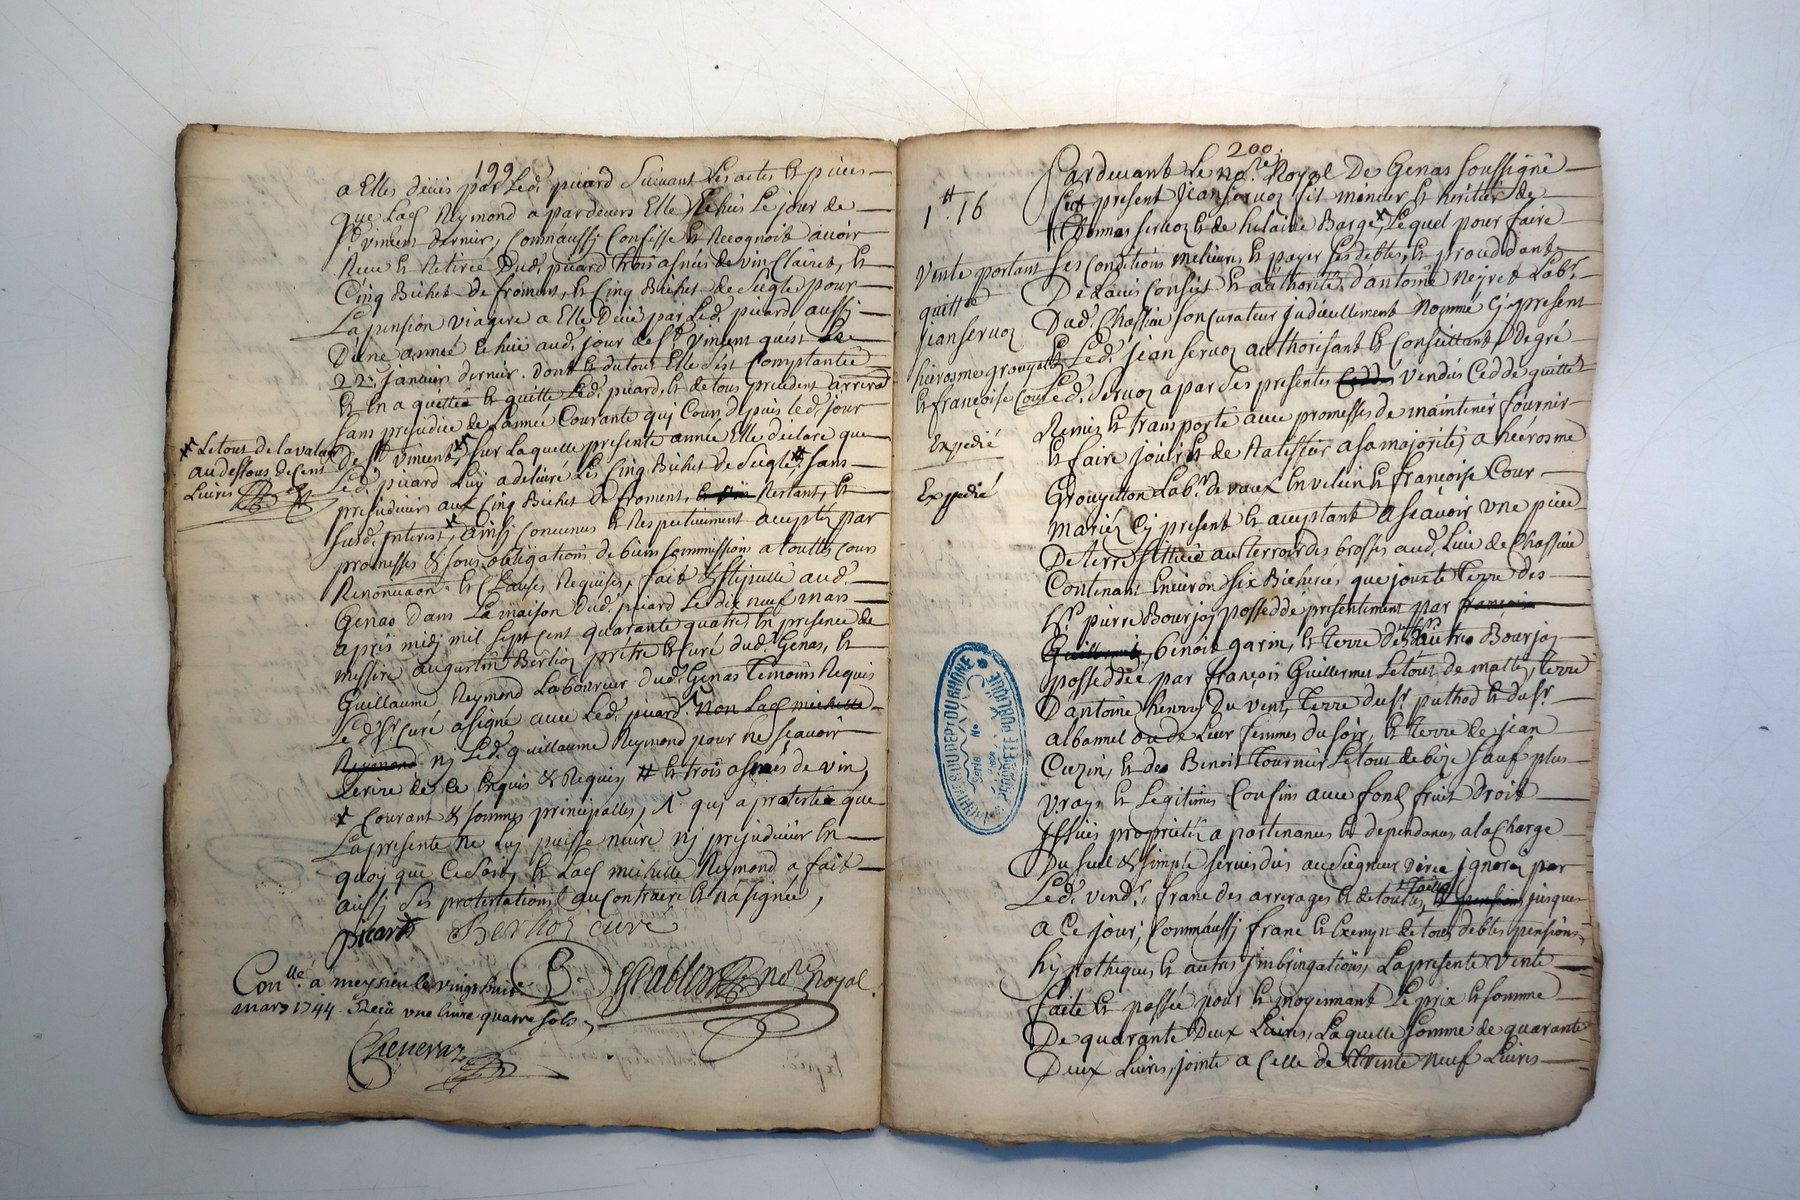 199
a Elles deües par Led. picard Suivant Les actes et pieces
que Lad. Reymond a pardevers Elle Echeus Le jour de
St vincent dernier, Comm'aussj Confesse et Recognoit avoir
Receu et Retirée Dud. picard trois asnées de vin Clairet, et
Cinq Bichet de froment, et Cinq Bichet de Seigle pour
La pension viagere a Elle Deüe par Led. picard aussj
D'une année Echeüe aud. jour de St. vincent quest Le
22e janvier dernier. Dont et du tout Elle s'est Comptantée
et En a quittée et quitte Led. picard, et de tous precedent arrera
sans prejudice de L'année Courante quj Cour depuis led. jour
De St vincent, sur Laquelle presente année Elle declare que
Led. picard Luy a delivré Les Cinq Bichet de Seigle, sans
prejudicier aux Cinq Bichet de froment, et vin Restant, et
susd. interest, ainsj Convenus et Respectivement accepté par
promesses & sous obligations de biens soummission a touttes cours
Renonciaon et Clauses Requises, fait & stipullé aud.
Genas Dans La maison Dud. picard Le dix neuf mars
apres midj mil sept cent quarante quatre, En presence de
messire augustin Berlioz prêtre et curé dud. Genas, et
Guillaume Reymond Laboureur dud. Genas temoins Requis
Le d. Sr. Curé a signé avec Led. picard, Non Lad. michelle
Reymond nj Led. guillaume Reymond pour ne scavoir
Ecrire de ce Enquis & Requis, # et trois asnées de vin,
x Courant & sommes principalles, quj a protesté que
La presente ne Luj puisse nuire nj prejudicier En
quoy que Ce soit, et Lad. michelle Reymond a fait
aussj Ses protestations au Contraire et n'a signée,
picard Berlioz curé
not. Royal.
Conlle. á meyzieu le vingt huit
mars 1744. Receu une livre quatre sols,
Le tout de la valeur
au dessous de Cent
Livres
200.
Pardevant Le nore. Royal De Genas soussigné
fut present Jean servoz fils mineur et heritier de
Thomas servoz et de helaine Barge, Lequel pour faire
Ses conditions melieures et payer ses debtes, et procedant
De L'avis Conseil et authorité d'antoine Neyret Labr.
Dud. Chassieu son curateur judiciellement Nommé Cj-present
et Led. jean servoz authorisant et Conseillant, De gré
Led. Servoz a par Ses presentes Cedde vendus Cedde quitté
Remis et transporté avec promesses de maintenir fournir
et faire jouir, et de Ratiffier a sa majorité, a hierosme
Grouyetton Lab.r de vaux En velin et françoise Cour
Mariés Cj present et acceptant a scavoir une piece
De terre Scittuée au terroir des brosses aud. Lieu de Chassieu
Contenant Environ six Bicherées que jouxte terre des
hrs. pierre Bourjoj possedde presentement par françois
Guillermet, benoit garin, et terre des hrs. autre Bourjoj
posseddée par françois Guillermet Le tout de matin, terre
D'antoine henry Du vent, terre du Sr. puthod et du Sr.
albannel ou de Leur femmes du soir, et terre de jean
Cuzin, et des Benoit tournier Le tout de bize sauf plus
vrays et Legitimes Confins avec fond fruit droit
Issües proprietés apartenances et dependances, a la Charge
Du seul & simple servis dus au seigneur Directe ignoré par
Led. vendr. franc des arrerages et de touttes et pensions jusques
a Ce jour, Comm'aussj franc et Exempt de tous debtes pensions,
hipotheques et autres Imbringations, La presente vente
faite et passée pour et moyennant Le prix et somme
De quarante Deux Livres, Laquelle somme de quarante
Deux Livres, jointe a Celle de trente neuf Livres
1.# 16
vente portant
quitte
jean servoz
hierosme grouyett
et françoise Cour
Expedié
Expedié